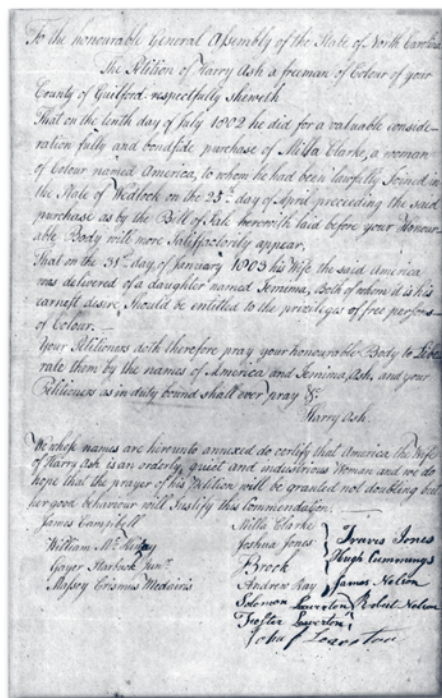 To the honourable General Assembly of the State of North Carolina
The Petition of Harry Ash a freeman of Colour of your
County of Guilford respectfully sheweth
That on the tenth day of July 1802 he did for a valuable conside-
ration fully and bondfide purchase of Milla Clarke, a woman
of Colour named America, to whom he had been lawfully Joined in
the State of Wedlock on the 25th day of April preceeding the said
purchase as by the Bill of Sale herewith laid before your Honour-
able Body will more Satisfactorily appear,
That on the 31st day of January 1803 his Wife the said America
was delivered of a daughter named Jemima, Both of whom it is his
earnest desire Should be entitled to the privileges of free persons
of Colour. —
Your Petitioners doth therefore pray your honourable Body to Libe
rate them by the names of America and Jemima Ash, and your
Petitioners as in duty bound shall ever pray &c
Harry Ash.
We whose names are hereunto annexed do certify that America the Wife
of Harry Ash is an orderly, quiet and industrious Woman and we do
hope that the prayer of his Petition will be granted not doubting but
her good behaviour will Justify this Commendation. —
James Campbell Milla Clarke
William Joshua Jones Travis Jones
Starbuck Junr. Brook Hugh Cummings
Massey Medairis Andrew Ray James Nelson
Solomon Robert Nelson
John